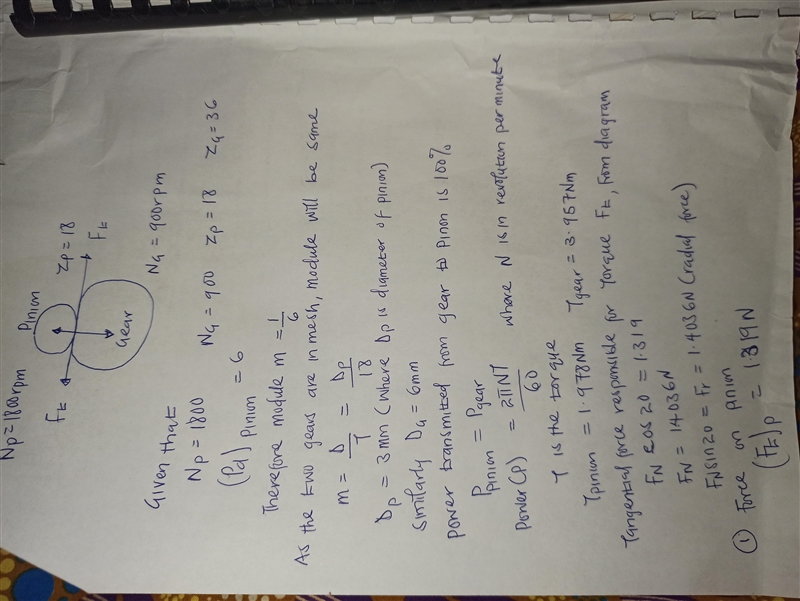 NP=1800rpm
Pinion
ZP=18
Ft
Ft
Gear
NG=900rpm
Given that
NP=1800 NG=900 ZP=18 ZG=36
(Pd) Pinion = 6
Therefore module m = 1/6
As the two gears are in mesh, module will be same
m = D/T = DP/18
DP = 3mm (where DP is diameter of pinion)
Similarly DG = 6mm
Power transmitted from gear to Pinon is 100%
Ppinion = Pgear
Power(P) = 2πNT/60 where N is in revolution per minute
T is the torque
Tpinion = 1.978Nm Tgear = 3.957Nm
Tangential force responsible for Torque Ft, From diagram
FN cos20 = 1.319
FN = 1.4036N
FN sin20 = Fr = 1.4036N (radial force)
① Force on pinion
(Ft)P = 1.319N